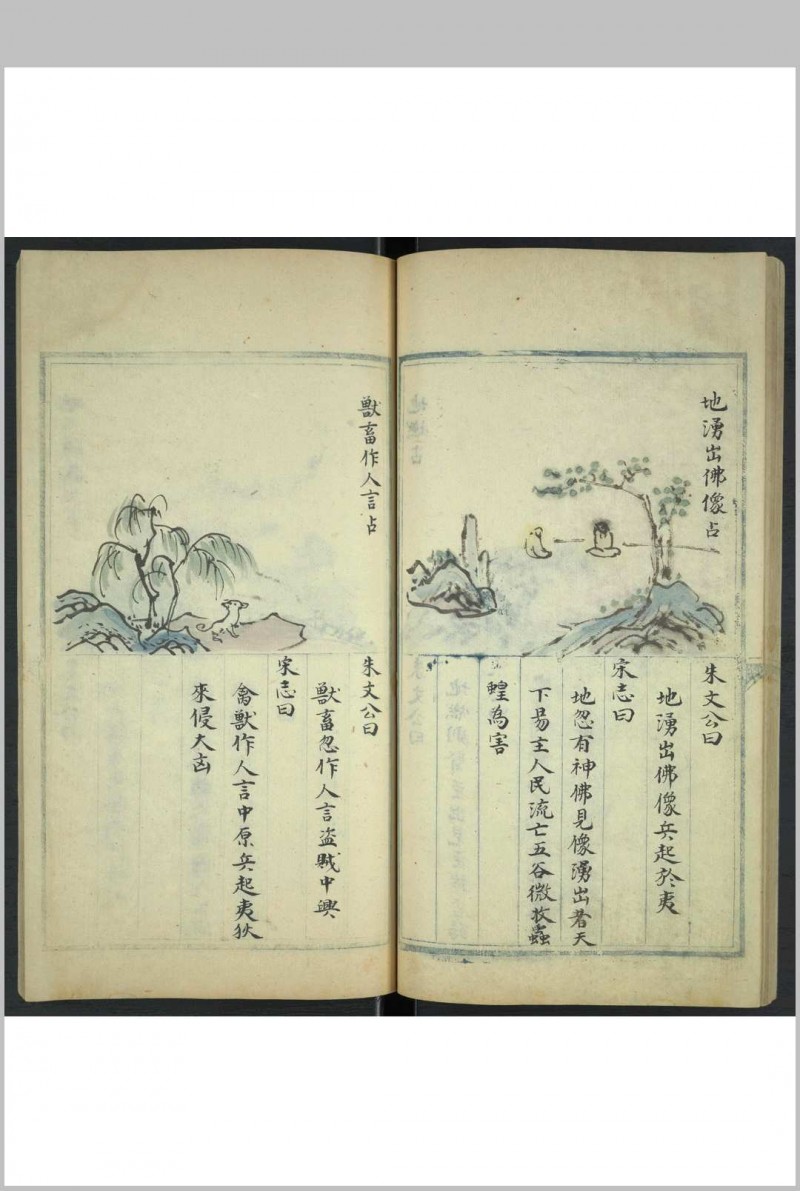 地湧出佛像占
朱文公曰
地湧出佛像兵起於夷
宋志曰
地忽有神佛見像湧出者天
下易主人民流亡五谷微收蟲
蝗為害
獸畜作人言占
朱文公曰
獸畜忽作人言盗賊中興
宋志曰
禽獸作人言中原兵起夷狄
來侵大凶